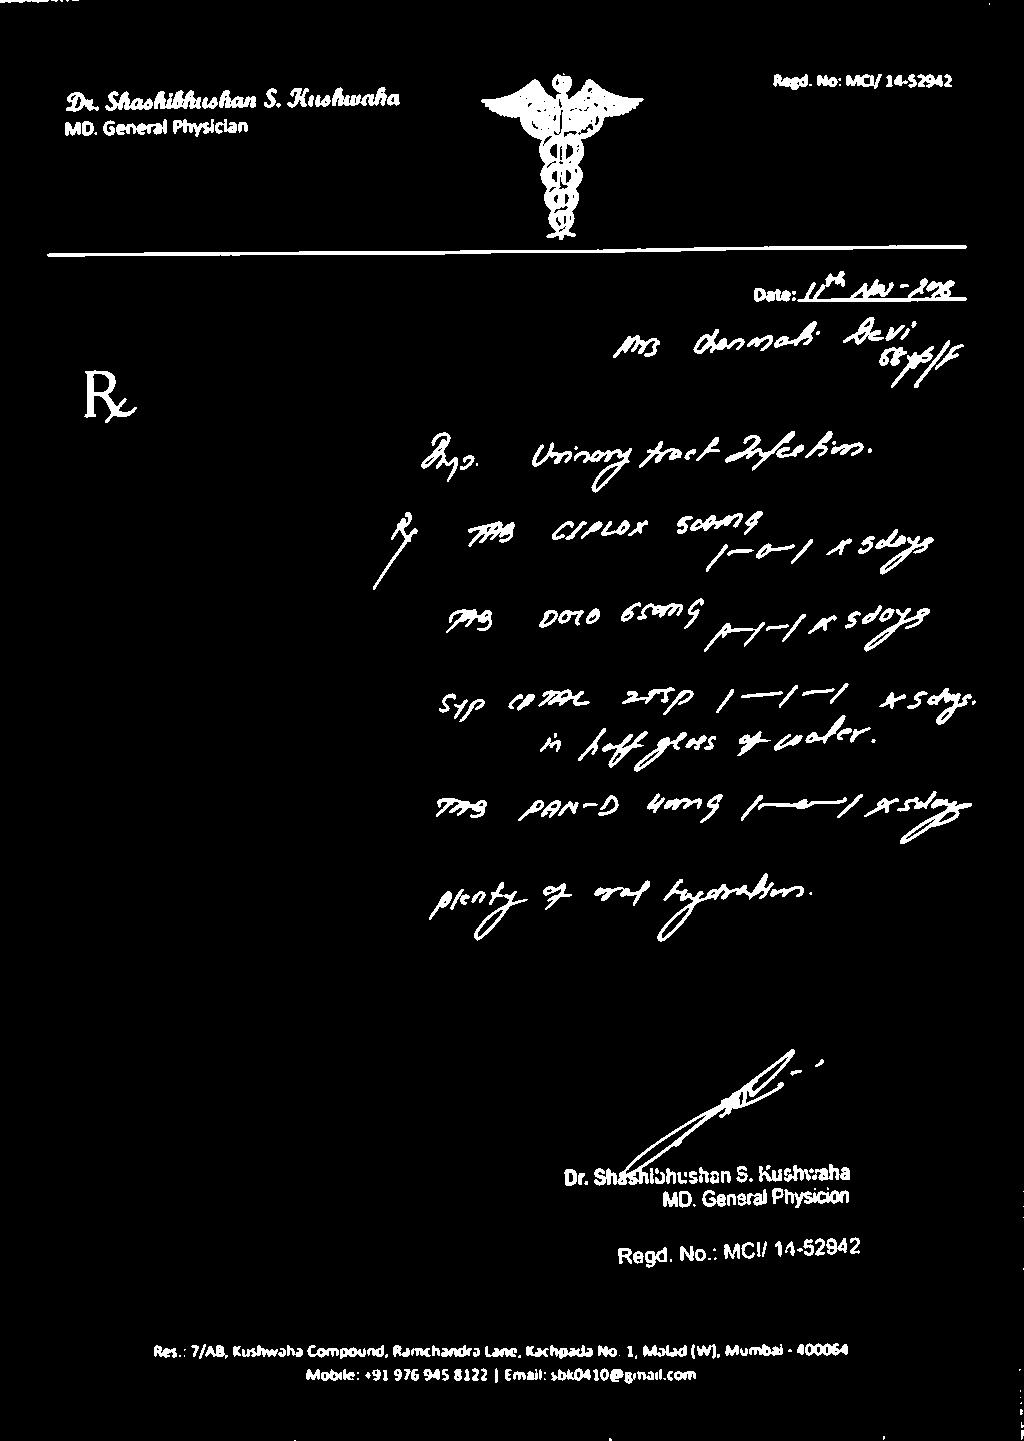 Dr. Shashibhushan S. Kushwaha
MD. General Physician
Regd. No: MCI/ 14-52942
Date: 11th Nov - 2018
Mrs Devi
68 yrs/F
Rx
Urinary tract Infection.
Rx TAB CIPLOX 500mg
1-0-1 x 5days
TAB DOLO 650mg 1-1-1 x 5days
Syp 2TSP 1-1-1 x 5days.
in half glass of water.
TAB PAN-D 40mg 1-0-1 x 5days
plenty of oral hydration.
Dr. Shashibhushan S. Kushwaha
MD. General Physicion
Regd. No.: MCI/ 14-52942
Res.: 7/AB, Kushwaha Compound, Ramchandra Lane, Kachpada No. 1, Malad (W), Mumbai - 400064
Mobile: +91 976 945 8122 | Email: sbk0410@gmail.com